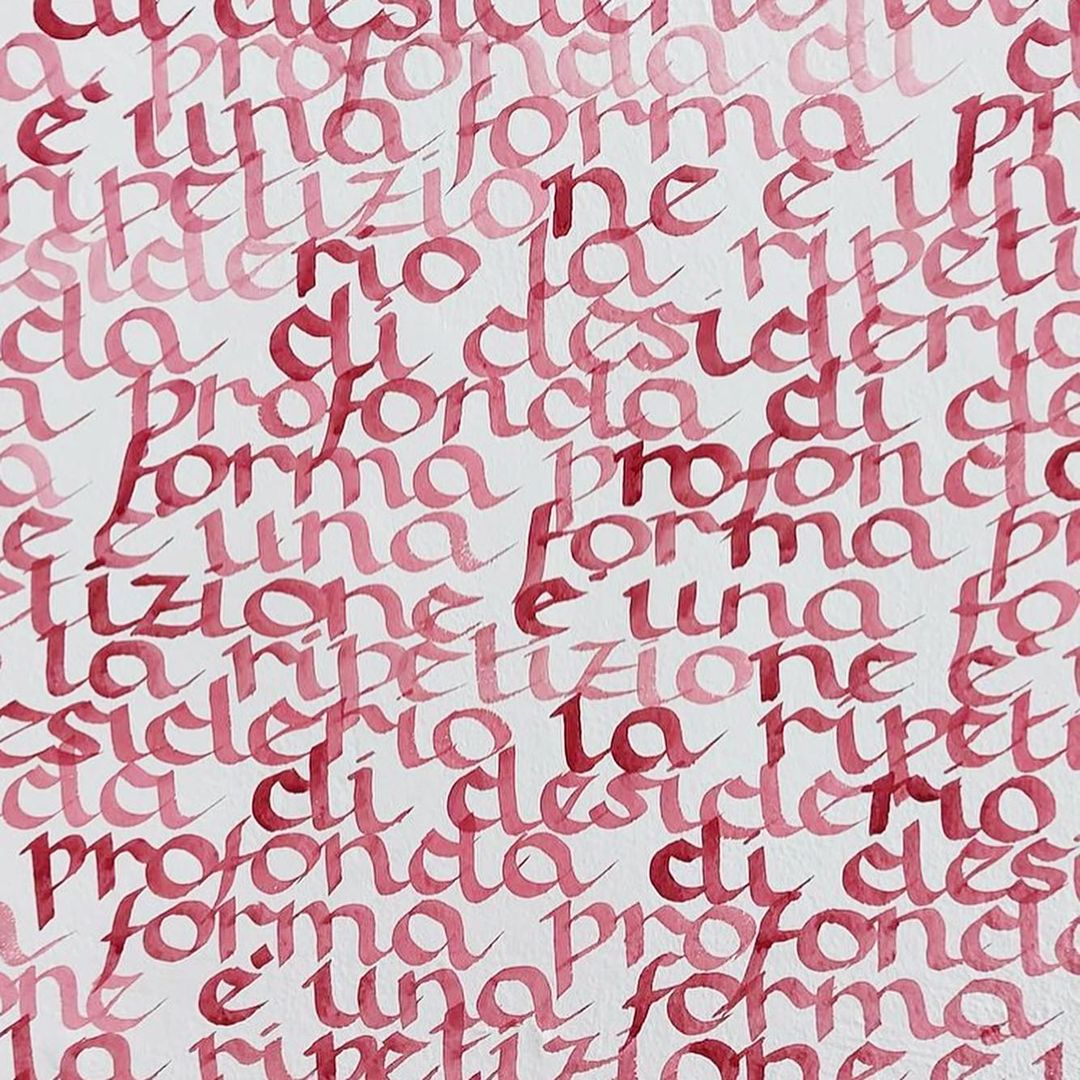 di desiderio
profonda di
è una forma
ripetizione è un
siderio la ripeti
da di desiderio
profonda di de
forma profonda
e è una forma pr
tizione è una fo
la ripetizione è
esiderio la ripeti
da di desiderio
profonda di desi
forma profonda
one è una forma
la ripetizione è